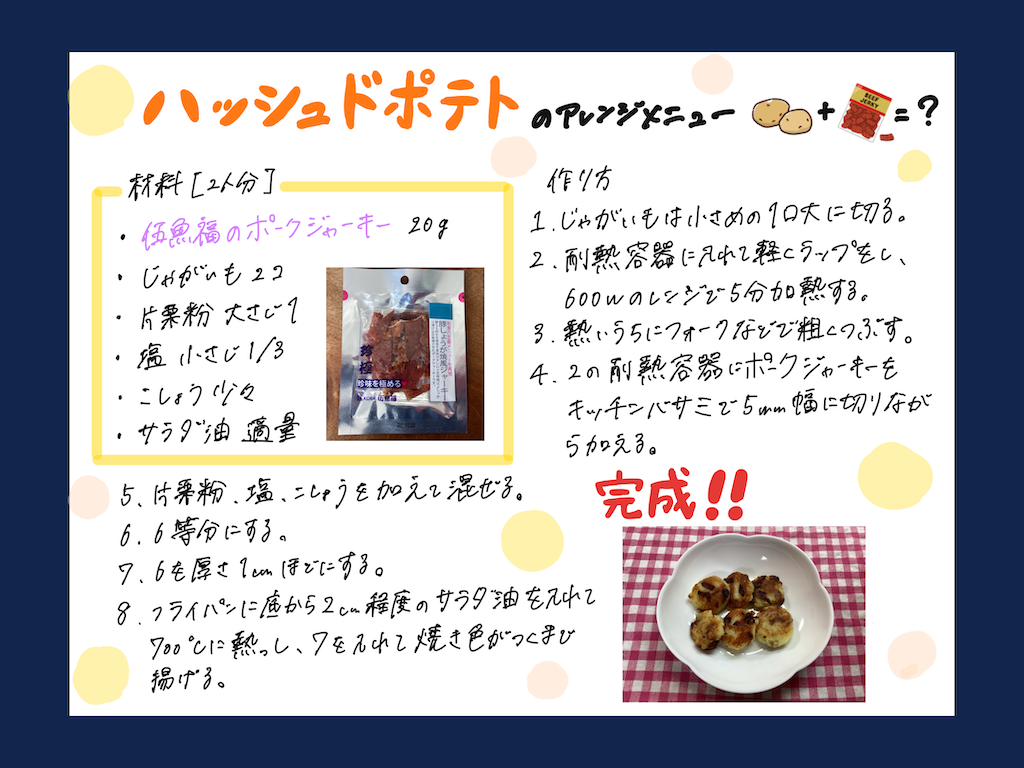 ハッシュドポテトのアレンジメニュー + BEEF JERKY = ?
材料[2人分]
・伍魚福のポークジャーキー 20g
・じゃがいも 2コ
・片栗粉 大さじ1
・塩 小さじ1/3
・こしょう 少々
・サラダ油 適量
豚しょうが焼風ジャーキー
珍極
珍味を極める
KOBE 伍魚福
作り方
1. じゃがいもは小さめの1口大に切る。
2. 耐熱容器に入れて軽くラップをし、
600wのレンジで5分加熱する。
3. 熱いうちにフォークなどで粗くつぶす。
4. 2の耐熱容器にポークジャーキーを
キッチンバサミで5mm幅に切りなが
ら加える。
5. 片栗粉、塩、こしょうを加えて混ぜる。
6. 6等分にする。
7. 6を厚さ1cmほどにする。
8. フライパンに底から2cm程度のサラダ油を入れて
700℃に熱っし、7を入れて焼き色がつくまで
揚げる。
完成!!